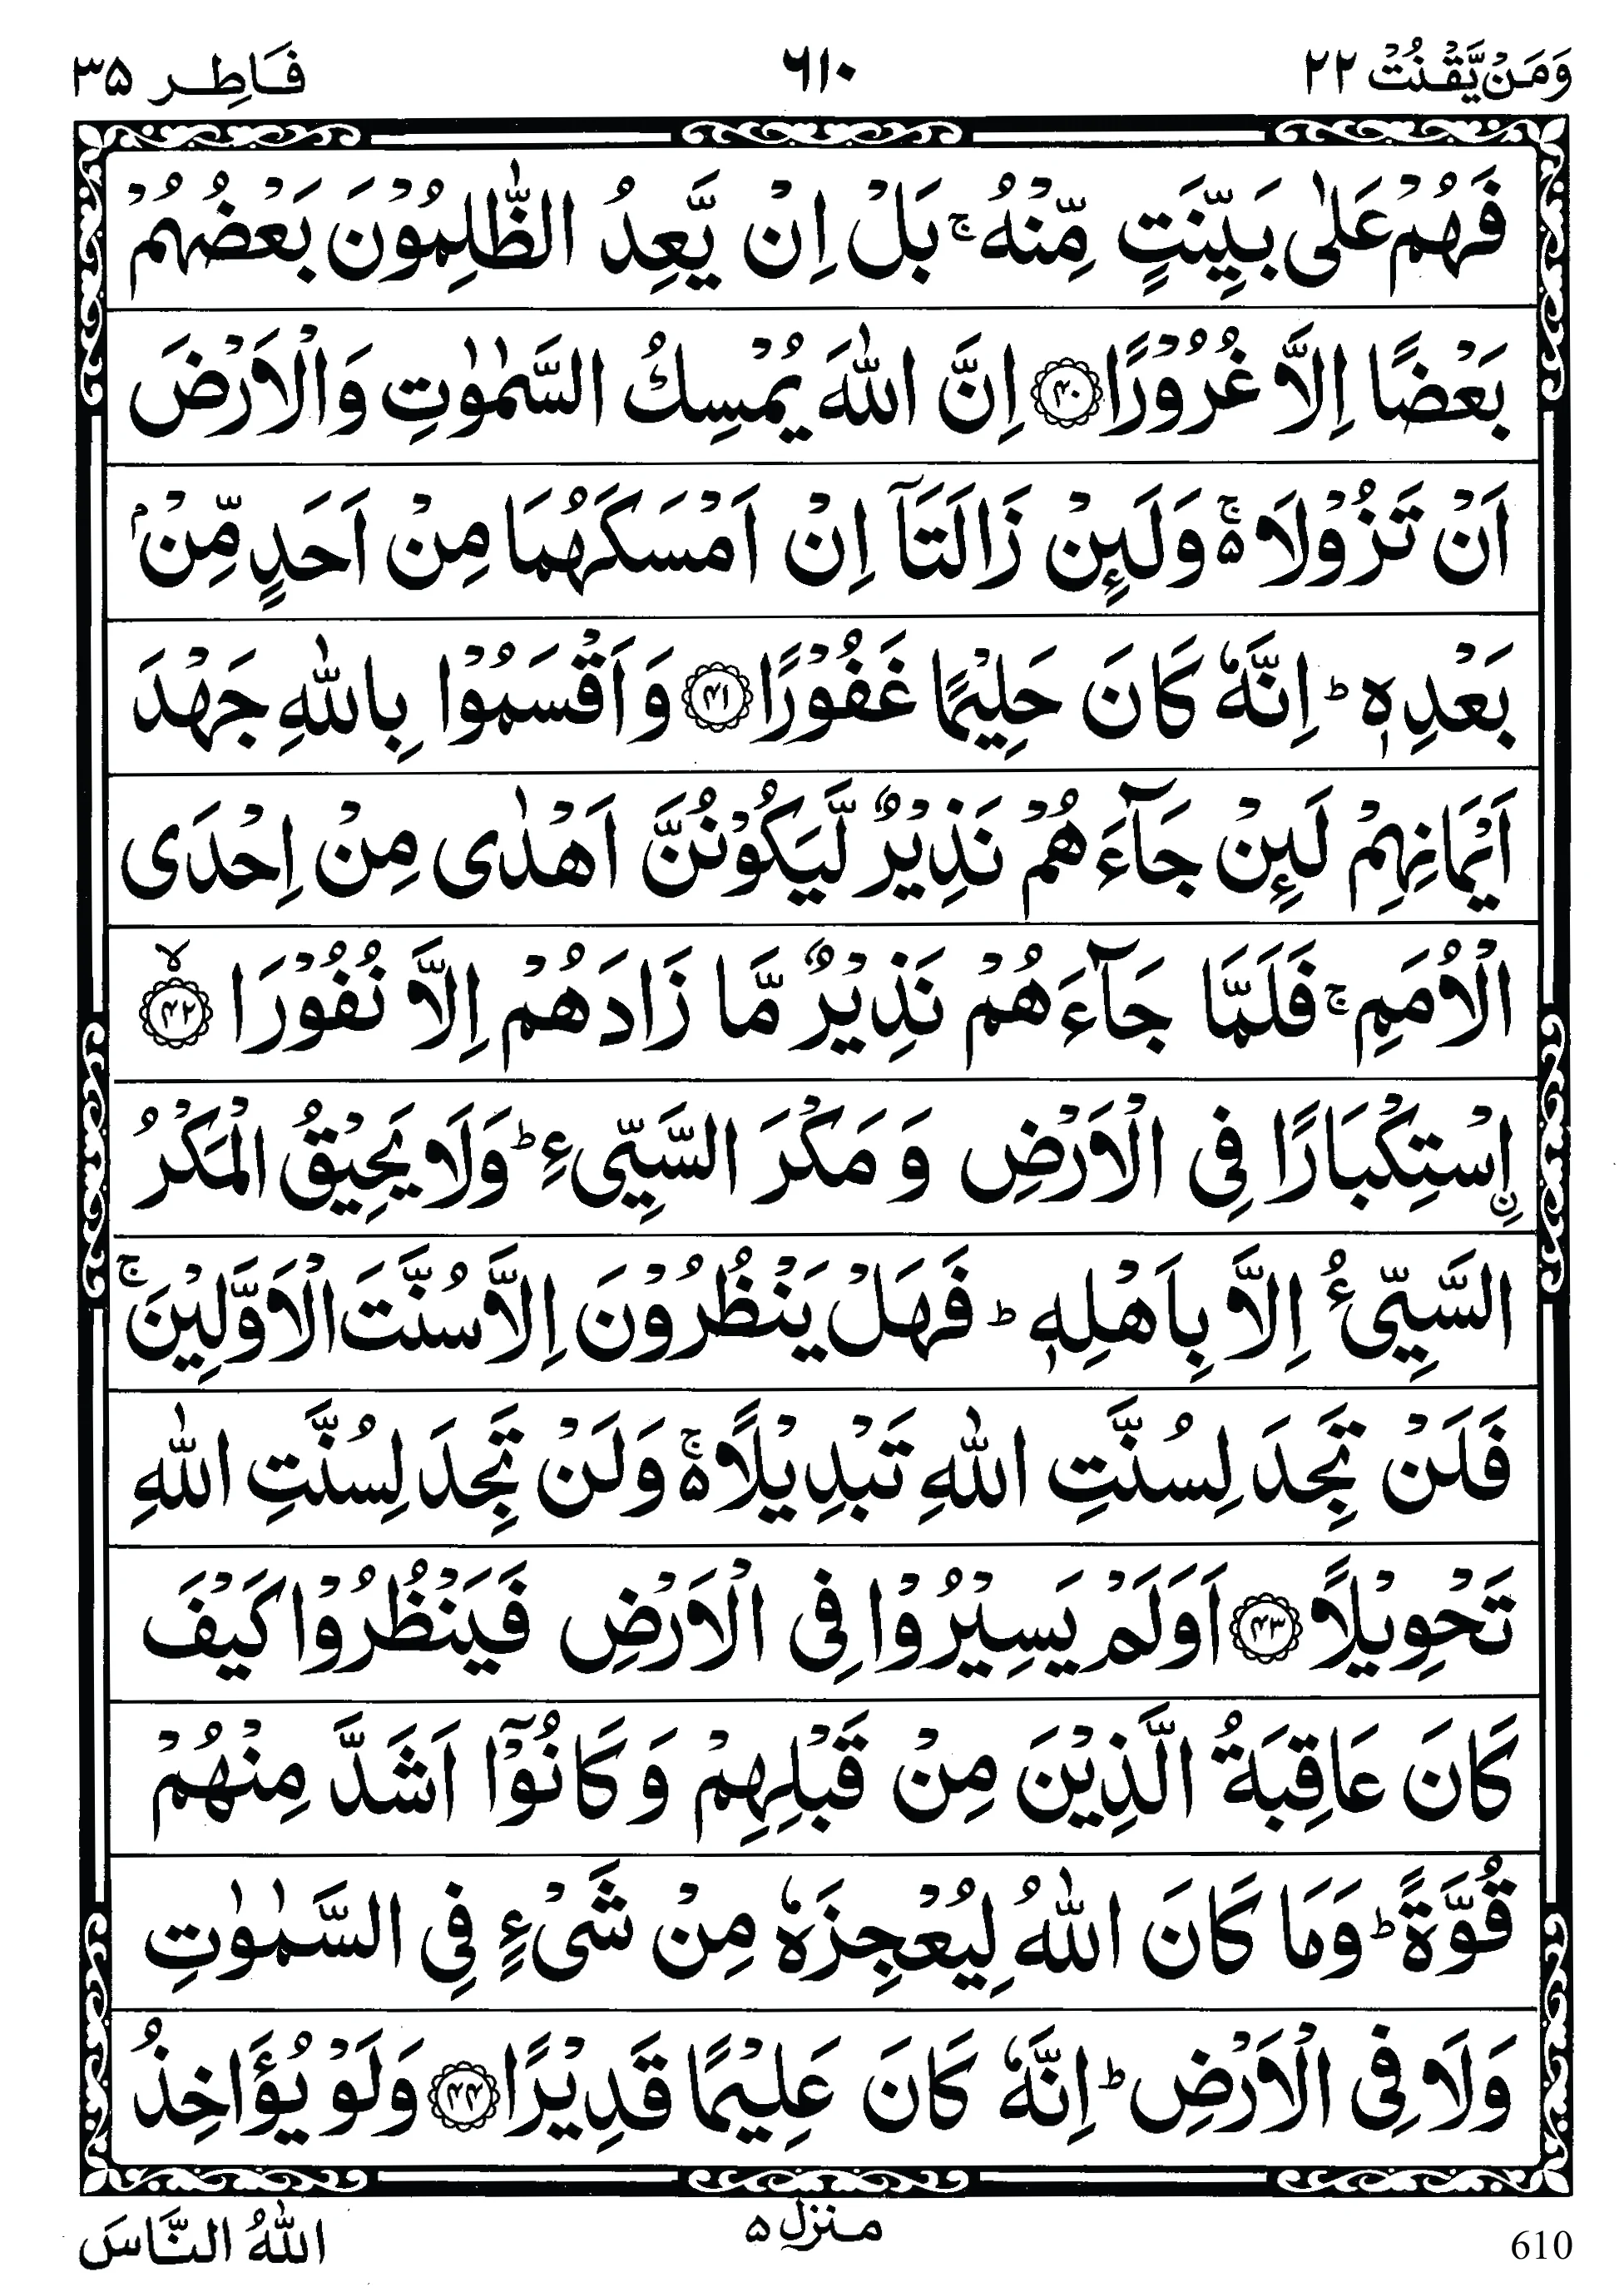 وَمَنۡ يَّقۡنُتۡ ٢٢ ٦١٠ فَاطِر ٣٥
فَهُمۡ عَلٰى بَيِّنَتٍ مِّنۡهُ ۚ بَلۡ اِنۡ يَّعِدُ الظّٰلِمُوۡنَ بَعۡضُهُمۡ
بَعۡضًا اِلَّا غُرُوۡرًا ﴿۴۰﴾ اِنَّ اللّٰهَ يُمۡسِكُ السَّمٰوٰتِ وَالۡاَرۡضَ
اَنۡ تَزُوۡلَا ۵ۚ وَلَئِنۡ زَالَتَاۤ اِنۡ اَمۡسَكَهُمَا مِنۡ اَحَدٍ مِّنۡۢ
بَعۡدِهٖ ؕ اِنَّهٗ كَانَ حَلِيۡمًا غَفُوۡرًا ﴿۴۱﴾ وَاَقۡسَمُوۡا بِاللّٰهِ جَهۡدَ
اَيۡمَانِهِمۡ لَئِنۡ جَآءَهُمۡ نَذِيۡرٌ لَّيَكُوۡنُنَّ اَهۡدٰى مِنۡ اِحۡدَى
الۡاُمَمِ ۚ فَلَمَّا جَآءَهُمۡ نَذِيۡرٌ مَّا زَادَهُمۡ اِلَّا نُفُوۡرَا ﴿۴۲﴾ ۙ
اۨسۡتِكۡبَارًا فِى الۡاَرۡضِ وَ مَكۡرَ السَّيِّیءِ ؕ وَلَا يَحِيۡقُ الۡمَكۡرُ
السَّيِّیءُ اِلَّا بِاَهۡلِهٖ ؕ فَهَلۡ يَنۡظُرُوۡنَ اِلَّا سُنَّتَ الۡاَوَّلِيۡنَ ۚ
فَلَنۡ تَجِدَ لِسُنَّتِ اللّٰهِ تَبۡدِيۡلًا ۵ۚ وَلَنۡ تَجِدَ لِسُنَّتِ اللّٰهِ
تَحۡوِيۡلًا ﴿۴۳﴾ اَوَلَمۡ يَسِيۡرُوۡا فِى الۡاَرۡضِ فَيَنۡظُرُوۡا كَيۡفَ
كَانَ عَاقِبَةُ الَّذِيۡنَ مِنۡ قَبۡلِهِمۡ وَ كَانُوۡۤا اَشَدَّ مِنۡهُمۡ
قُوَّةً ؕ وَمَا كَانَ اللّٰهُ لِيُعۡجِزَهٗ مِنۡ شَیۡءٍ فِى السَّمٰوٰتِ
وَلَا فِى الۡاَرۡضِ ؕ اِنَّهٗ كَانَ عَلِيۡمًا قَدِيۡرًا ﴿۴۴﴾ وَلَوۡ يُؤَاخِذُ
610 منزل ۵ اللّٰهُ النَّاسَ